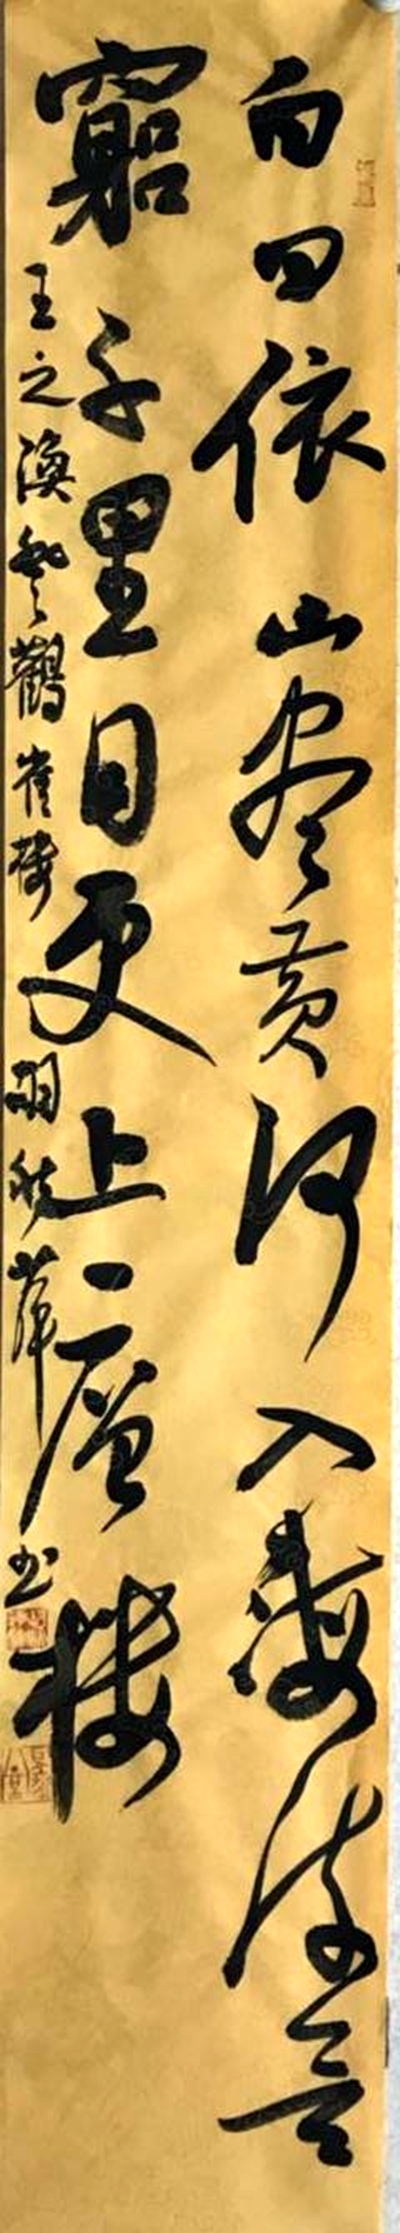 白日依山尽黄河入海流
窮千里目更上一層楼
王之渙登鸛雀楼 薛书